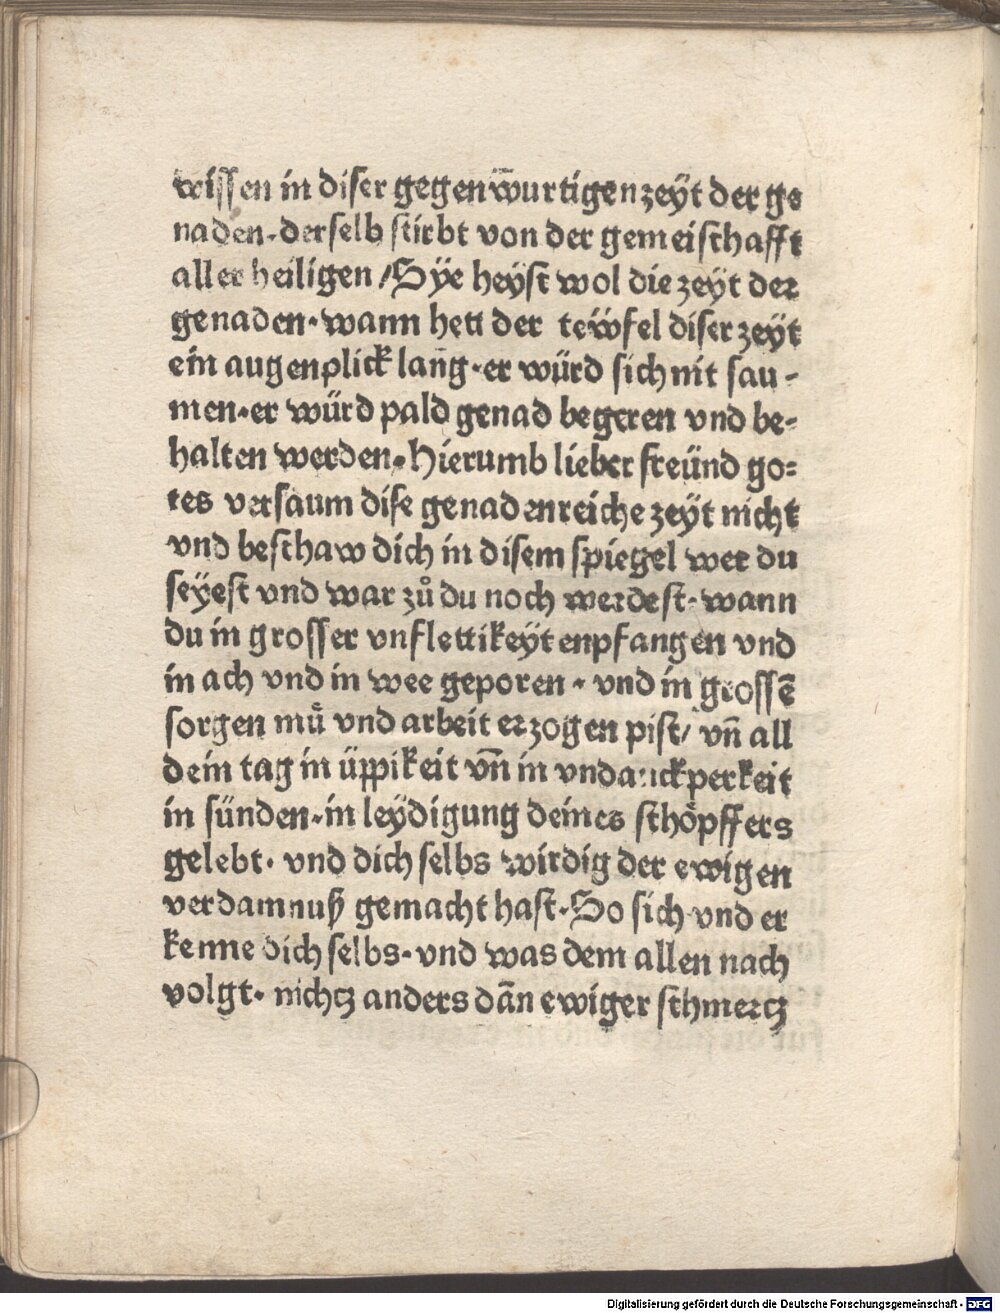 wissen in diser gegenw̄urtigen zeyt der ge
naden·derselb stirbt von der gemeischafft
aller heiligen /Sÿe heyst wol die zeÿt der
genaden·wann hett der tewfel diser zeÿt
ein augenplick lang·er würd sich nit sau-
men·er würd pald genad begeren vnd be-
halten werden·Hierumb lieber freünd go=
tes versaum dise genadenreiche zeÿt nicht
vnd beschaw dich in disem spiegel wer du
seÿest vnd war zů du noch werdest·wann
du in grosser vnflettikeÿt enpfangen vnd
in ach vnd in wee geporen·vnd in grossē
sorgen mů vnd arbeit erzogen pist/ vñ all
dein tag in üppikeit vñ in vndanckperkeit
in sünden·in leÿdigung deines schöpffers
gelebt·vnd dich selbs wirdig der ewigen
verdamnuß gemacht hast·So sich vnd er
kenne dich selbs·vnd was dem allen nach
volgt·nichcz anders dān ewiger schmercz
Digitalisierung gefördert durch die Deutsche Forschungsgemeinschaft - DFG